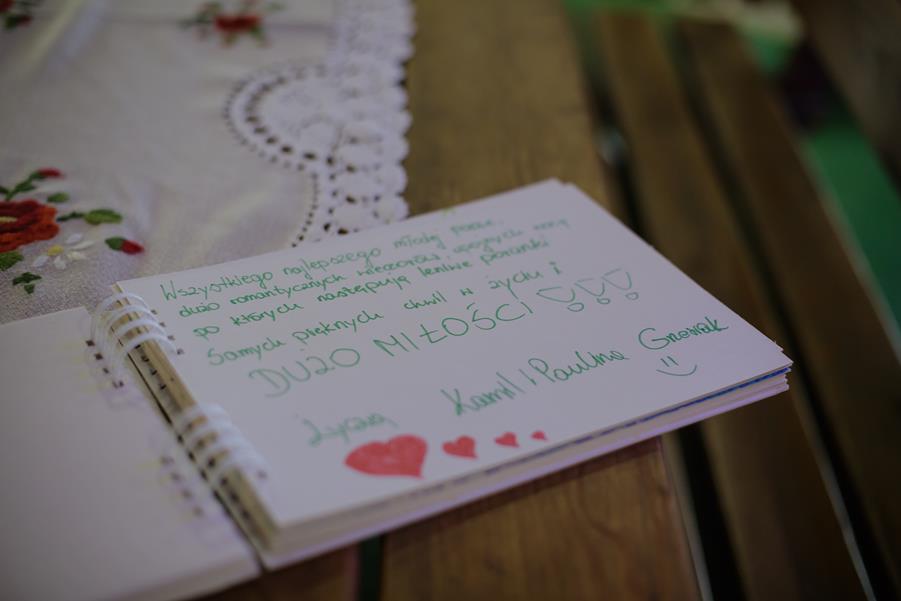 Wszystkiego najlepszego młodej parze,
dużo romantycznych wieczorów, upojnych nocy
po których następują leniwe poranki
Samych pięknych chwil w życiu i
DUŻO MIŁOŚCI !!!
życzą Kamil i Paulina